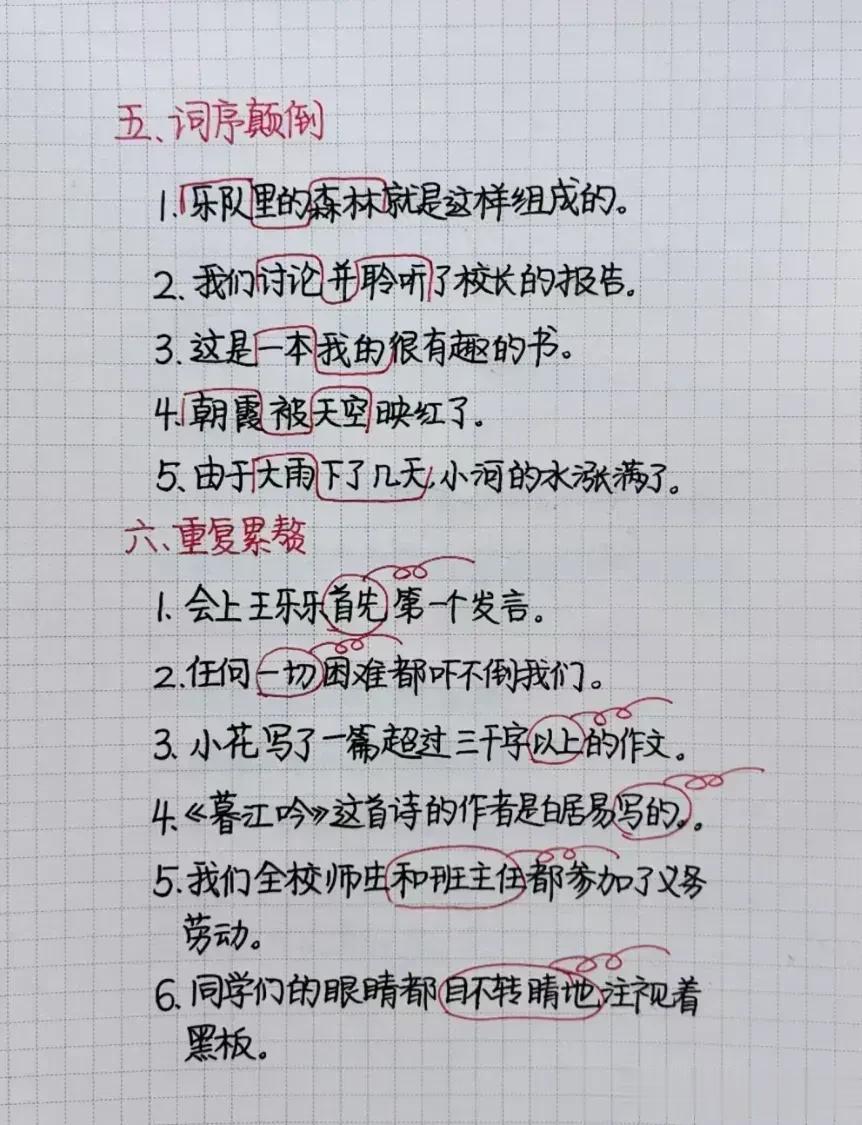 五、词序颠倒
1.乐队里的森林就是这样组成的。
2.我们讨论并聆听了校长的报告。
3.这是一本我的很有趣的书。
4.朝霞被天空映红了。
5.由于大雨下了几天,小河的水涨满了。
六、重复累赘
1.会上王乐乐首先第一个发言。
2.任何一切困难都吓不倒我们。
3.小花写了一篇超过三千字以上的作文。
4.《暮江吟》这首诗的作者是白居易写的。
5.我们全校师生和班主任都参加了义务
劳动。
6.同学们的眼睛都目不转睛地注视着
黑板。